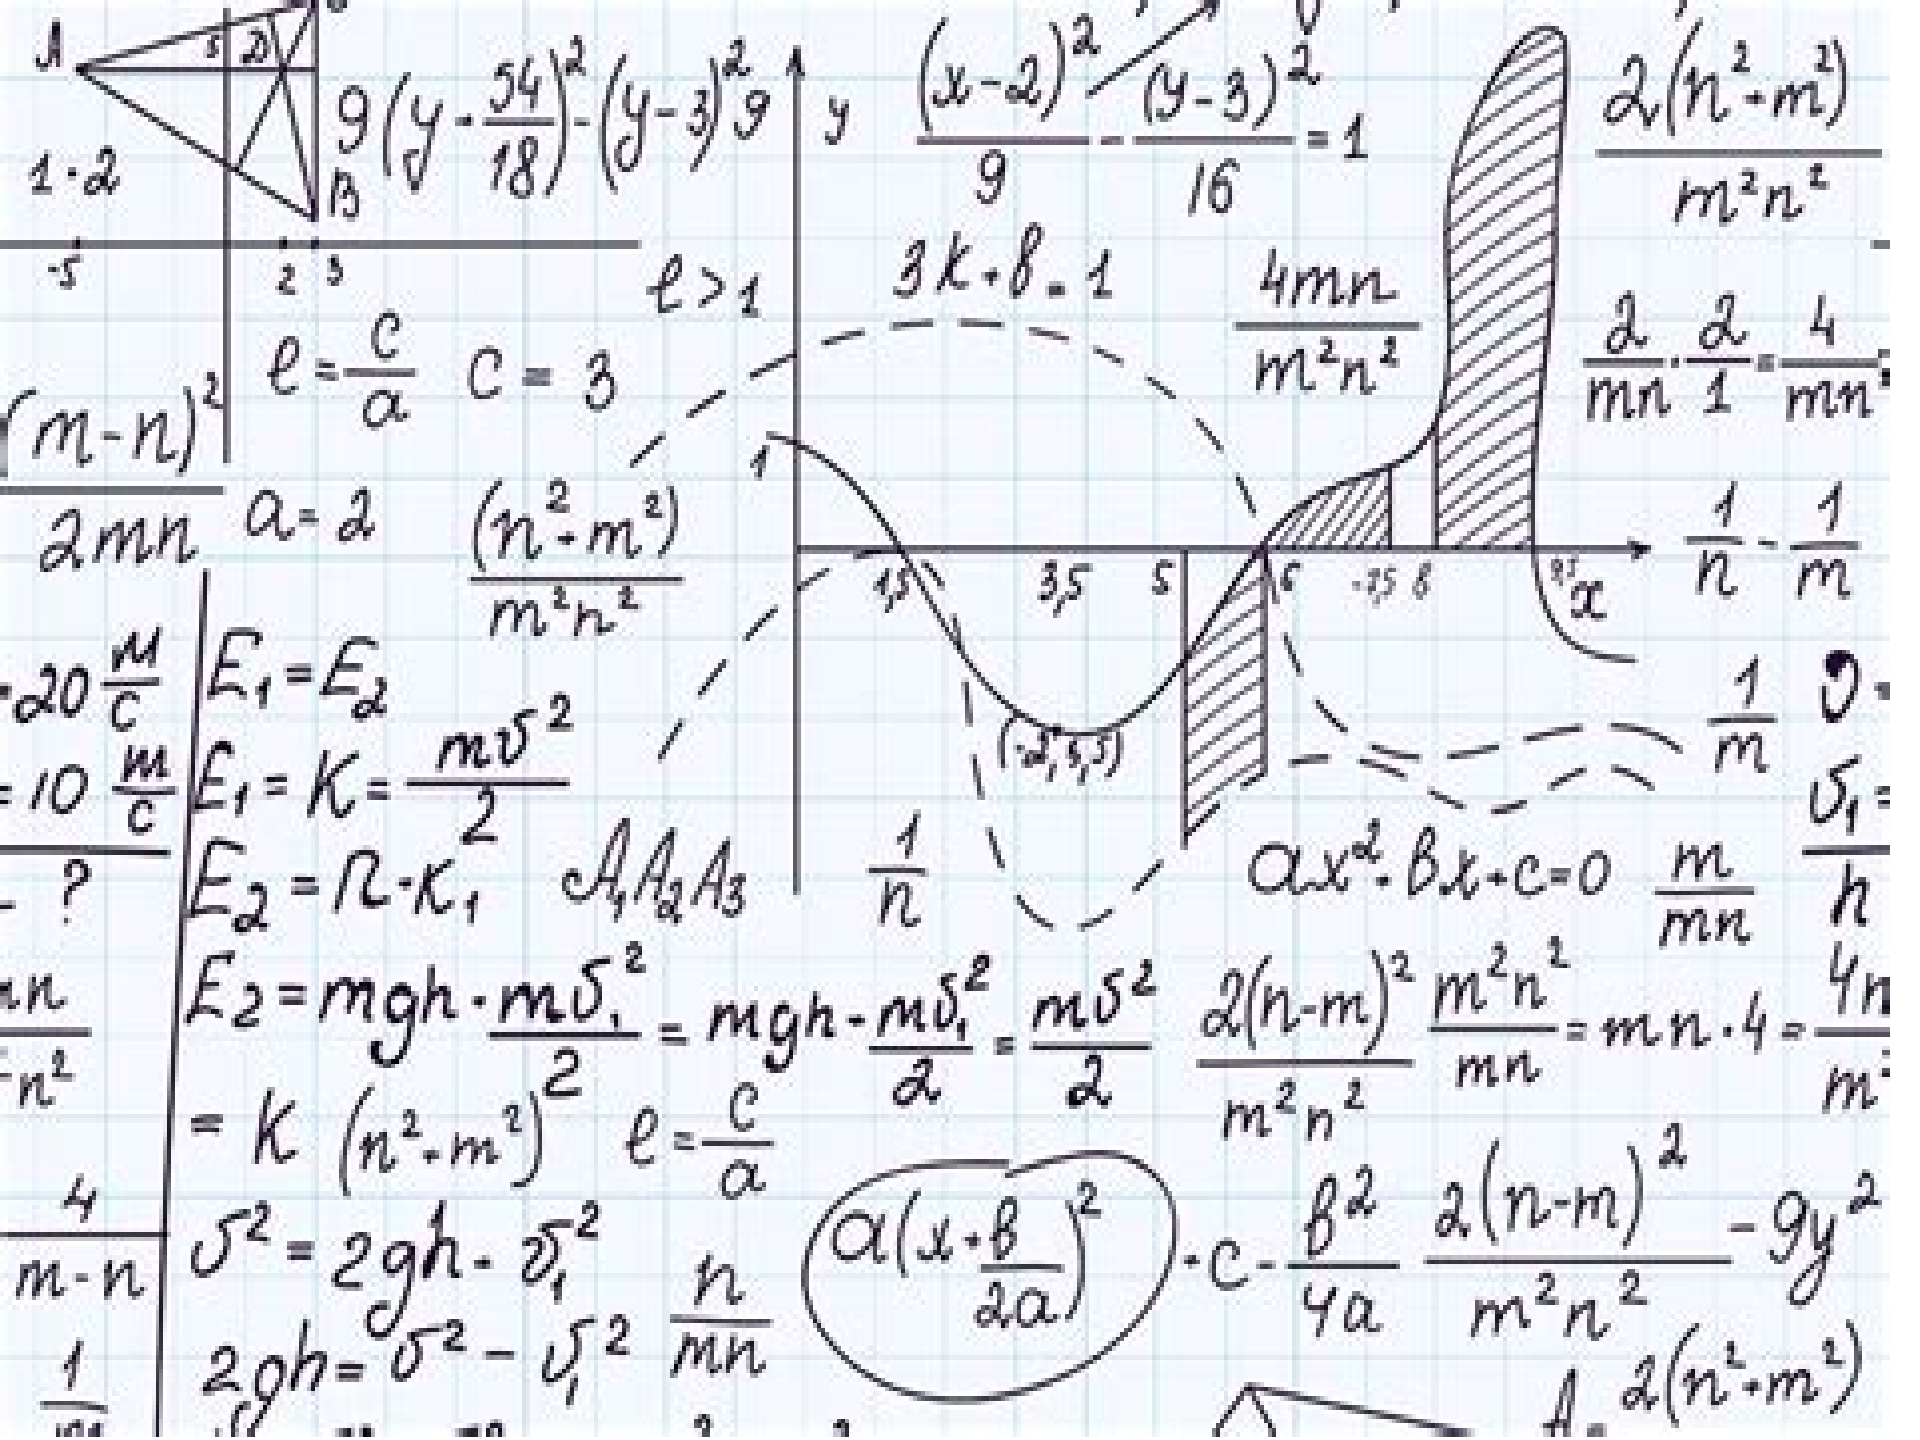 A
5
D
B
1·2
-5
2 3
9(y·54/18)²-(y-3)²9
y
(x-2)²/9 - (y-3)²/16 = 1
2(n²+m²)/m²n²
e>1
3k+b=1
4mn/m²n²
2/mn · 2/1 = 4/mn
e=c/a
c=3
(m-n)²/2mn
a=2
(n²+m²)/m²n²
1
1,5
3,5
5
6
8
x
1/n - 1/m
20 м/с
=10 m/c
?
E₁=E₂
E₁=K=mv²/2
E₂=П·K₁
A₁A₂A₃
1/n
1/m
ax²+bx+c=0
m/mn
v₁=
h
E₂=mgh·mv₁²/2=mgh·mv₁²/2=mv²/2
=K
(n²+m²)²
e=c/a
2(n-m)²/m²n²
m²n²/mn=mn·4=
4/m-n
v²=2gh·v₁²
2gh=v²-v₁²
n/mn
a(x+b/2a)²·c-b²/4a
2(n-m)²/m²n²-9y²
2(n²+m²)